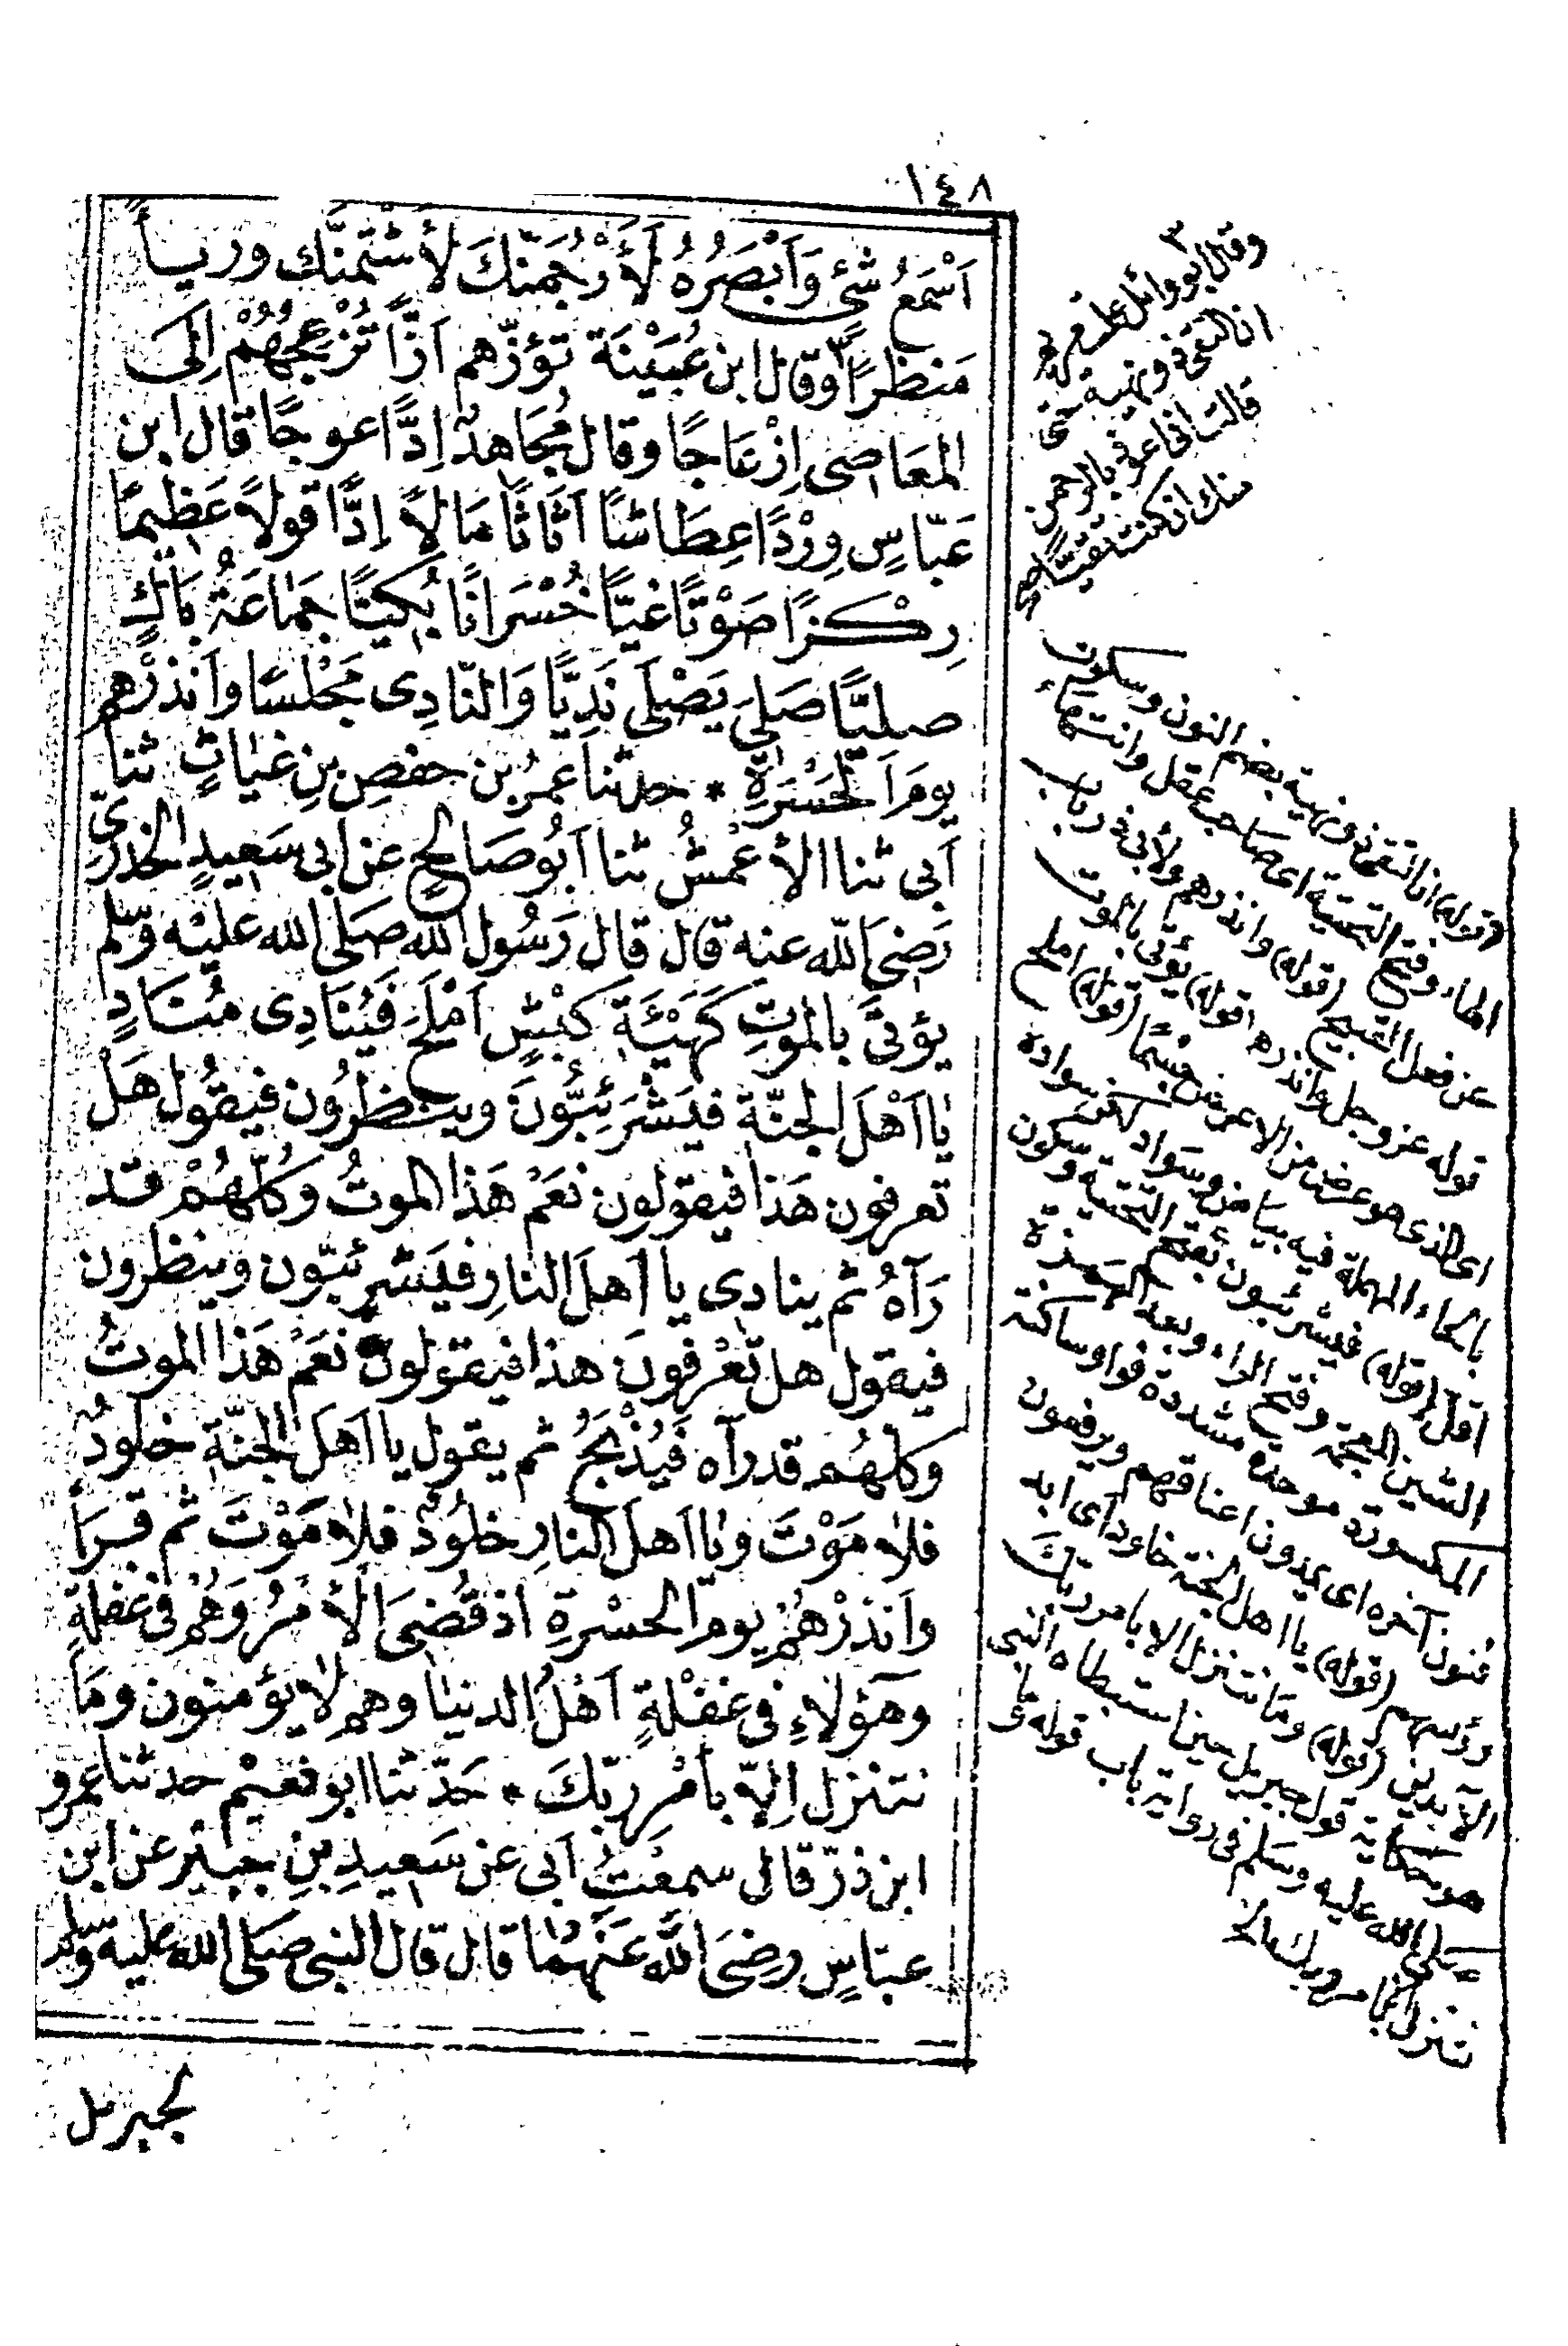 ١٤٨
اَسْمَعُ شَئٍ وَاَبْصَرُهُ لَاَرْجُمَنَّكَ لَأَشْتَمَنَّك وريـــاً
مَنظرًا ٣ وقال ابن عُيَيْنَة تَؤزّهم اَزًّا تُزْعِجُهُمْ اِلَى
المعَاصى اِزْعَاجًا وقال مُجَاهدٌ اِدًّا عوجًا قال ابن
عَبّاسٍ وِرْدًا عِطَاشًا اَثَاثًا مَالاً اِدًّا قولاً عَظيمًا
رِكْزًا صَوْتًا غيًّا خُسْرَانًا بُكِيًّا جَمَاعَةُ بَاكٍ
صليًّا صَلِىَ يَصْلَى نَدِيًّا وَالنّادِى مَجْلسًا وأنذرْهم
يومَ الحَسْرَةِ * حدثنا عمرُ بن حفصِ بنِ غياثٍ ثنا
اَبى ثنا الأعْمشُ ثنا اَبُو صَالحٍ عن ابى سَعيدٍ الخدرىّ
رَضىَ الله عنه قال قال رَسُول الله صَلى الله عليْه وسّلم
يؤتىَ بالموتِ كَهَيْئَةِ كَبْشٍ اَمْلَحَ فَيُنَادِى مُنَادٍ
يا اَهْلَ الجنّة فيَشْرَئِبُّونَ وينظرُون فيقُول هَلْ
تعرفون هَذا فيقولون نعَمْ هَذا الموتُ وكلّهُمْ قد
رَآهُ ثم ينادى يا اَهلَ النارِ فيَشرئبّون وينظرون
فيقول هل تَعْرفونَ هذا فيقولون نعَمْ هَذا الموتُ
وكلهُم قد رآه فَيُذْبَحُ ثم يقول يا اَهَلَ الجنّة خلودٌ
فلا مَوْتَ ويا اَهلَ النارِ خلُودٌ فلا مَوْتَ ثم قرَأ
وَاَنذرْهُمْ يومَ الحسْرةِ اذ قُضىَ الأمرُ وَهُمْ فى غفلةٍ
وهَؤلاءِ فى غفْلةٍ اَهْلُ الدنيا وهم لا يؤمنون ومَا
نتنزل اِلاّ بأمرِ ربّكَ * حَدّثنا ابو نعَيْم حدثنا عمرو
ابن ذرّ قال سمعْتُ اَبى عن سَعيدِ بنِ جبَيْر عن ابن
عبّاسٍ رضىَ اللهُ عَنهُما قال قال النبى صَلى الله عليه وسّلم
لجبريل
٣
وقال ابو وائل علمت مريم
ان التقى ذو نهية حتى
قالت انى اعوذ بالرحمن
منك ان كنت تقيّا صح
(قوله) ان التقى ذو نهية بضم النون وسكون
الهاء وفتح التحتية اى صاحب عقل وانتهاء
عن فعل القبيح (قوله) وانذرهم ولأبى ذر باب
قوله عز وجل وانذرهم (قوله) يؤتى بالموت
اى الذى هو عرض من الاعراض جسمًا (قوله) املح
بالحاء المهملة فيه بياض وسواد لكن سواده
اقل (قوله) فيشرئبون بفتح التحتية وسكون
الشين المعجمة وفتح الراء وبعد الهمزة
المكسورة موحدة مشددة فواو ساكنة
فنون آخره اى يمدون اعناقهم ويرفعون
رؤسهم (قوله) يا اهل الجنة خلود اى ابد
الآبدين (قوله) وما نتنزل الا بامر ربك
هو حكاية قول جبريل حين استبطاه النبى
صلى الله عليه وسلم فى رواية باب قوله وما
نتنزل الا بامر ربك الخ